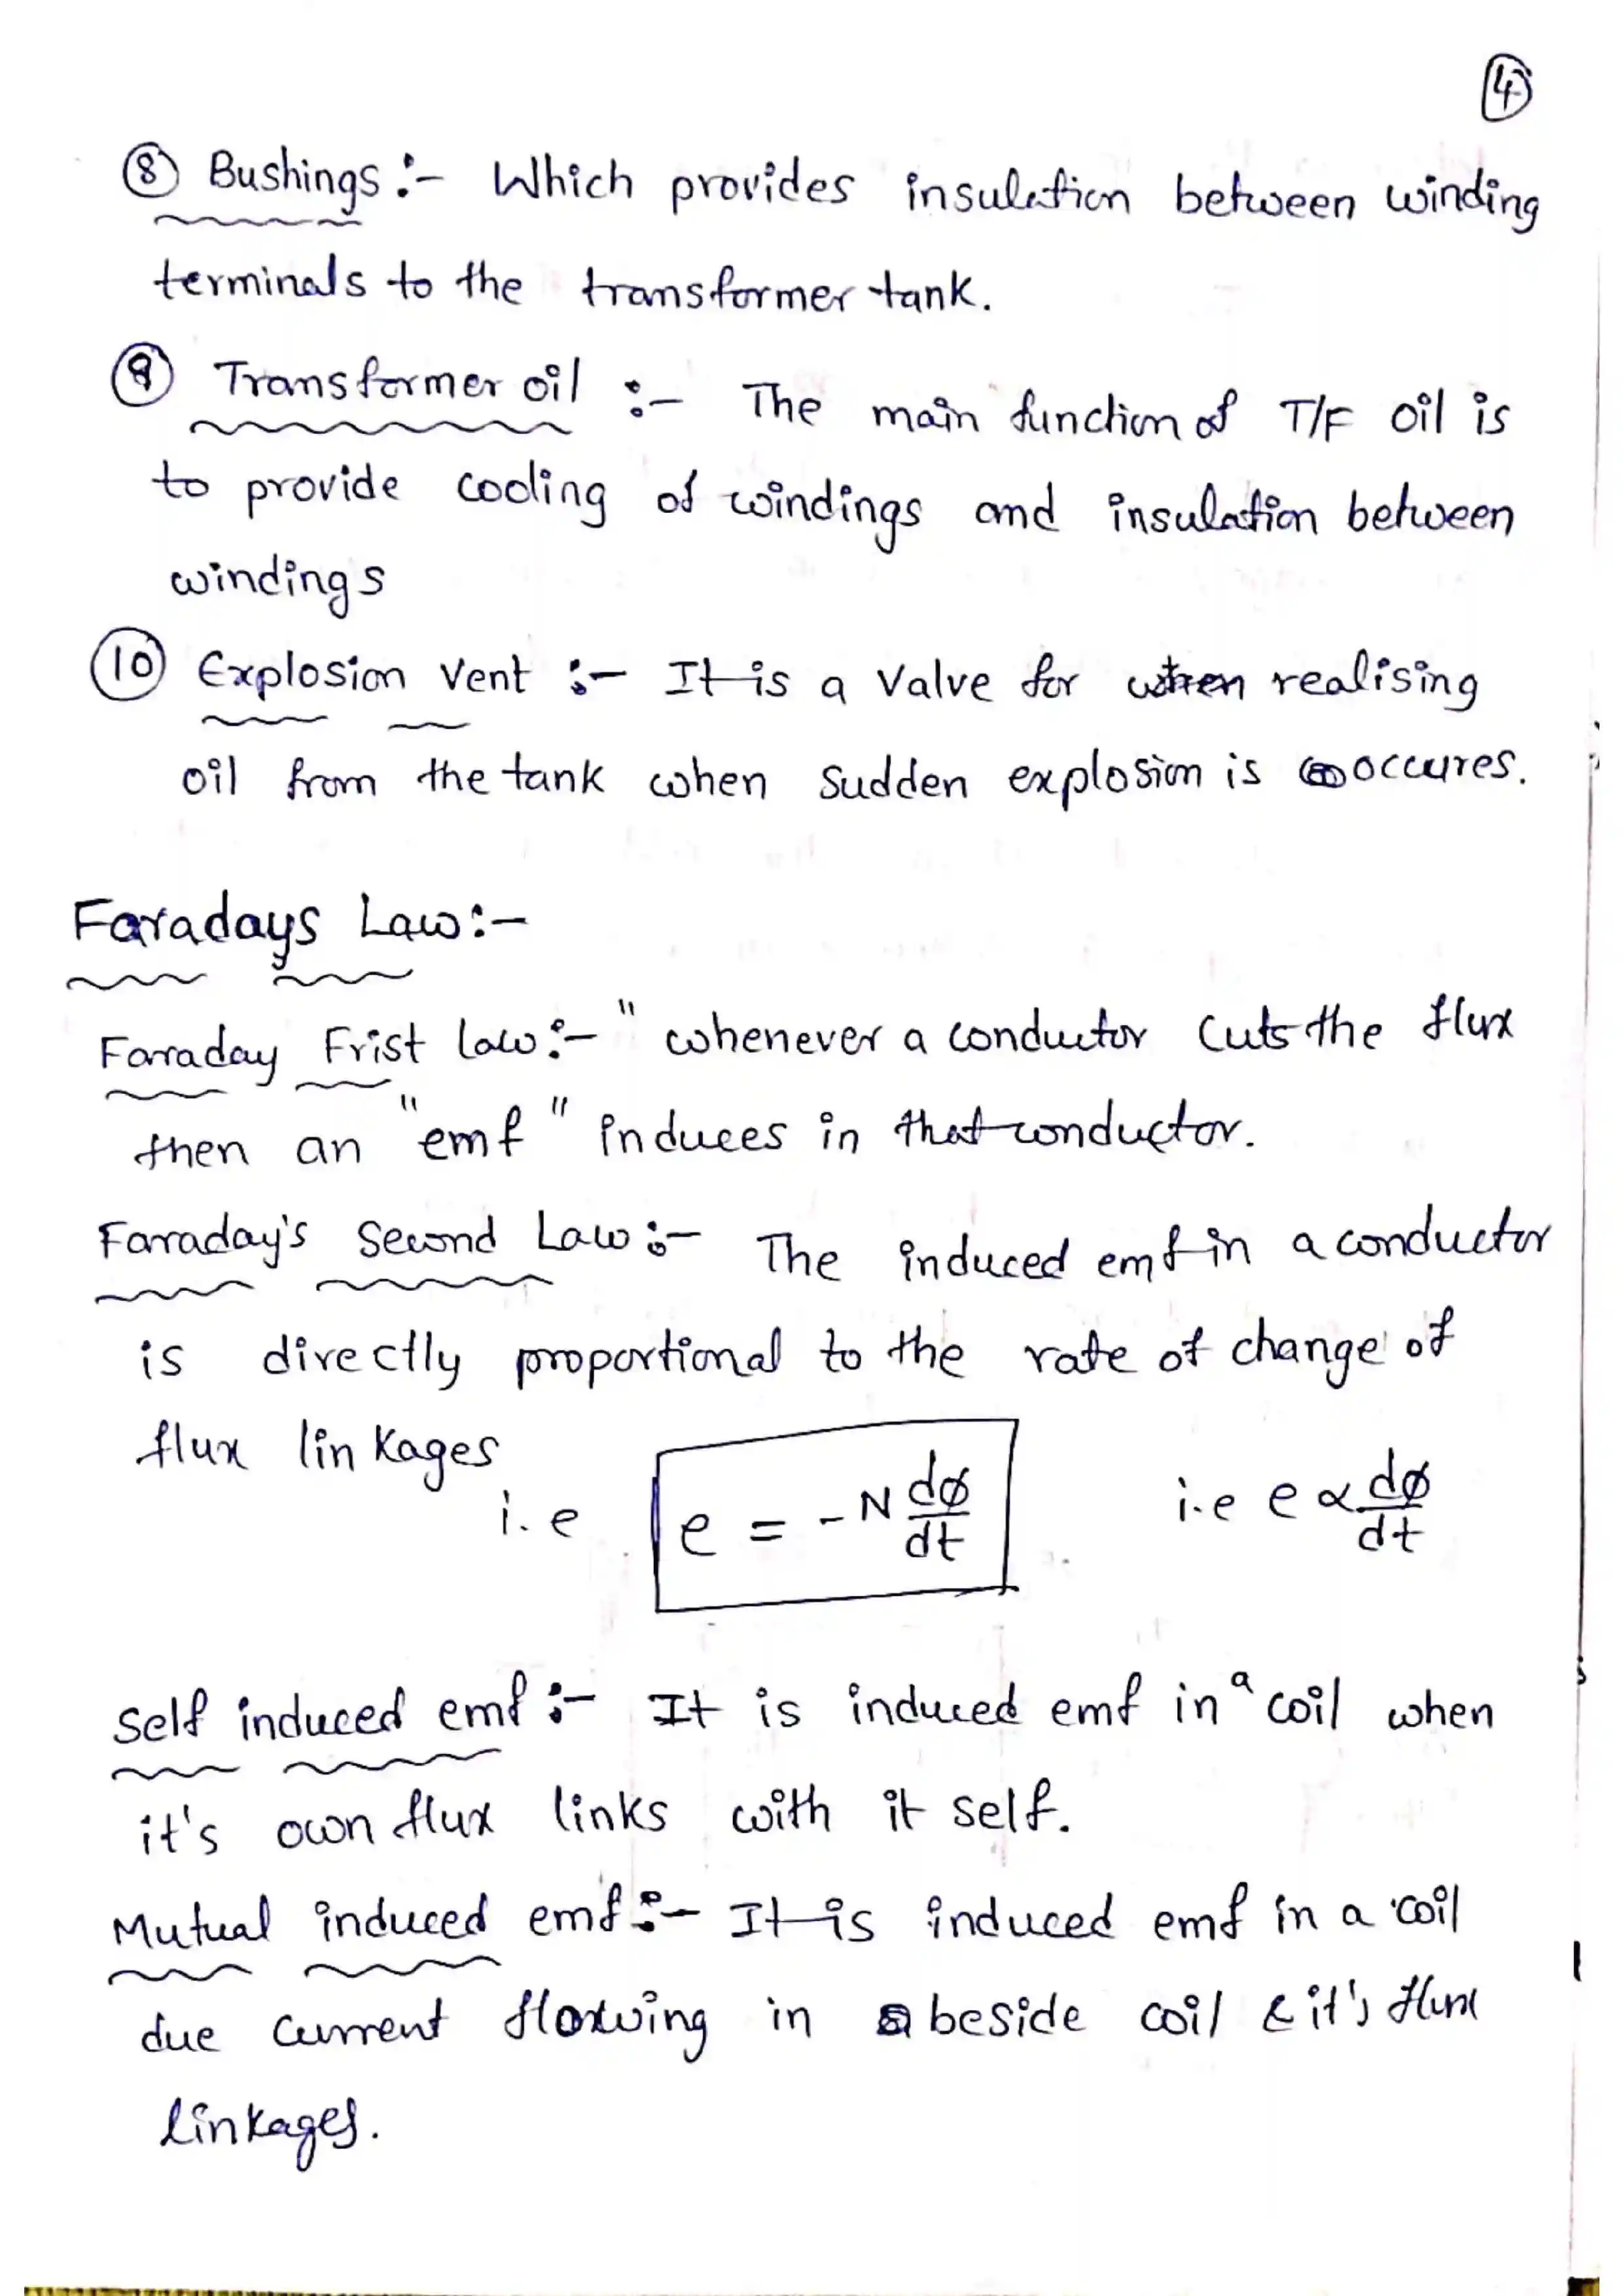 4
8 Bushings :- Which provides insulation between winding
terminals to the transformer tank.
9 Transformer oil :- The main function of T/F oil is
to provide cooling of windings and insulation between
windings
10 Explosion vent :- It is a Valve for when realising
oil from the tank when Sudden explosion is occures.
Faradays Law :-
Faraday Frist law :- " whenever a conductor cuts the flux
then an "emf" induces in that conductor.
Faraday's Second Law :- The induced emf in a conductor
is directly proportional to the rate of change of
flux linkages
i.e e = -N dø/dt i.e e ∝ dø/dt
Self induced emf :- It is induced emf in a coil when
it's own flux links with it self.
Mutual induced emf :- It is induced emf in a coil
due current flowing in beside coil & it's flux
linkages.